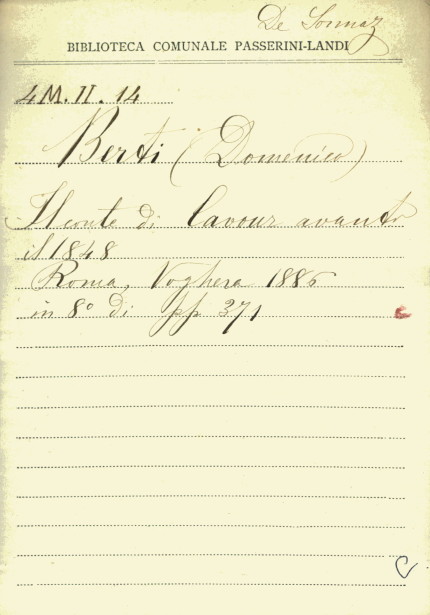 De Sonnaz
BIBLIOTECA COMUNALE PASSERINI-LANDI
4M.II.14
Berti (Domenico)
Il conte di Cavour avanti
il 1848
Roma, Voghera 1886
in 8° di pp 371